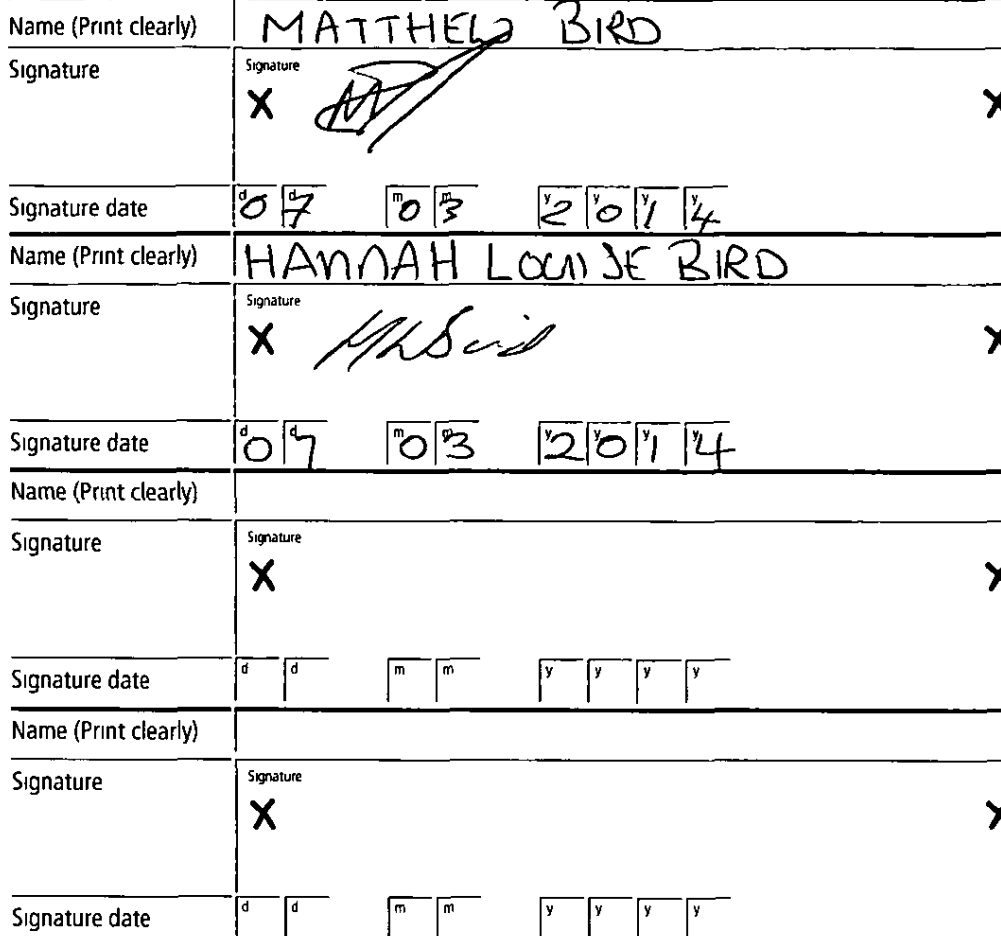 Name (Print clearly) MATTHEW BIRD
Signature Signature
X X
Signature date d0 d7 m0 m3 y2 y0 y1 y4
Name (Print clearly) HANNAH LOUISE BIRD
Signature Signature
X HLBird X
Signature date d0 d7 m0 m3 y2 y0 y1 y4
Name (Print clearly)
Signature Signature
X X
Signature date d d m m y y y y
Name (Print clearly)
Signature Signature
X X
Signature date d d m m y y y y